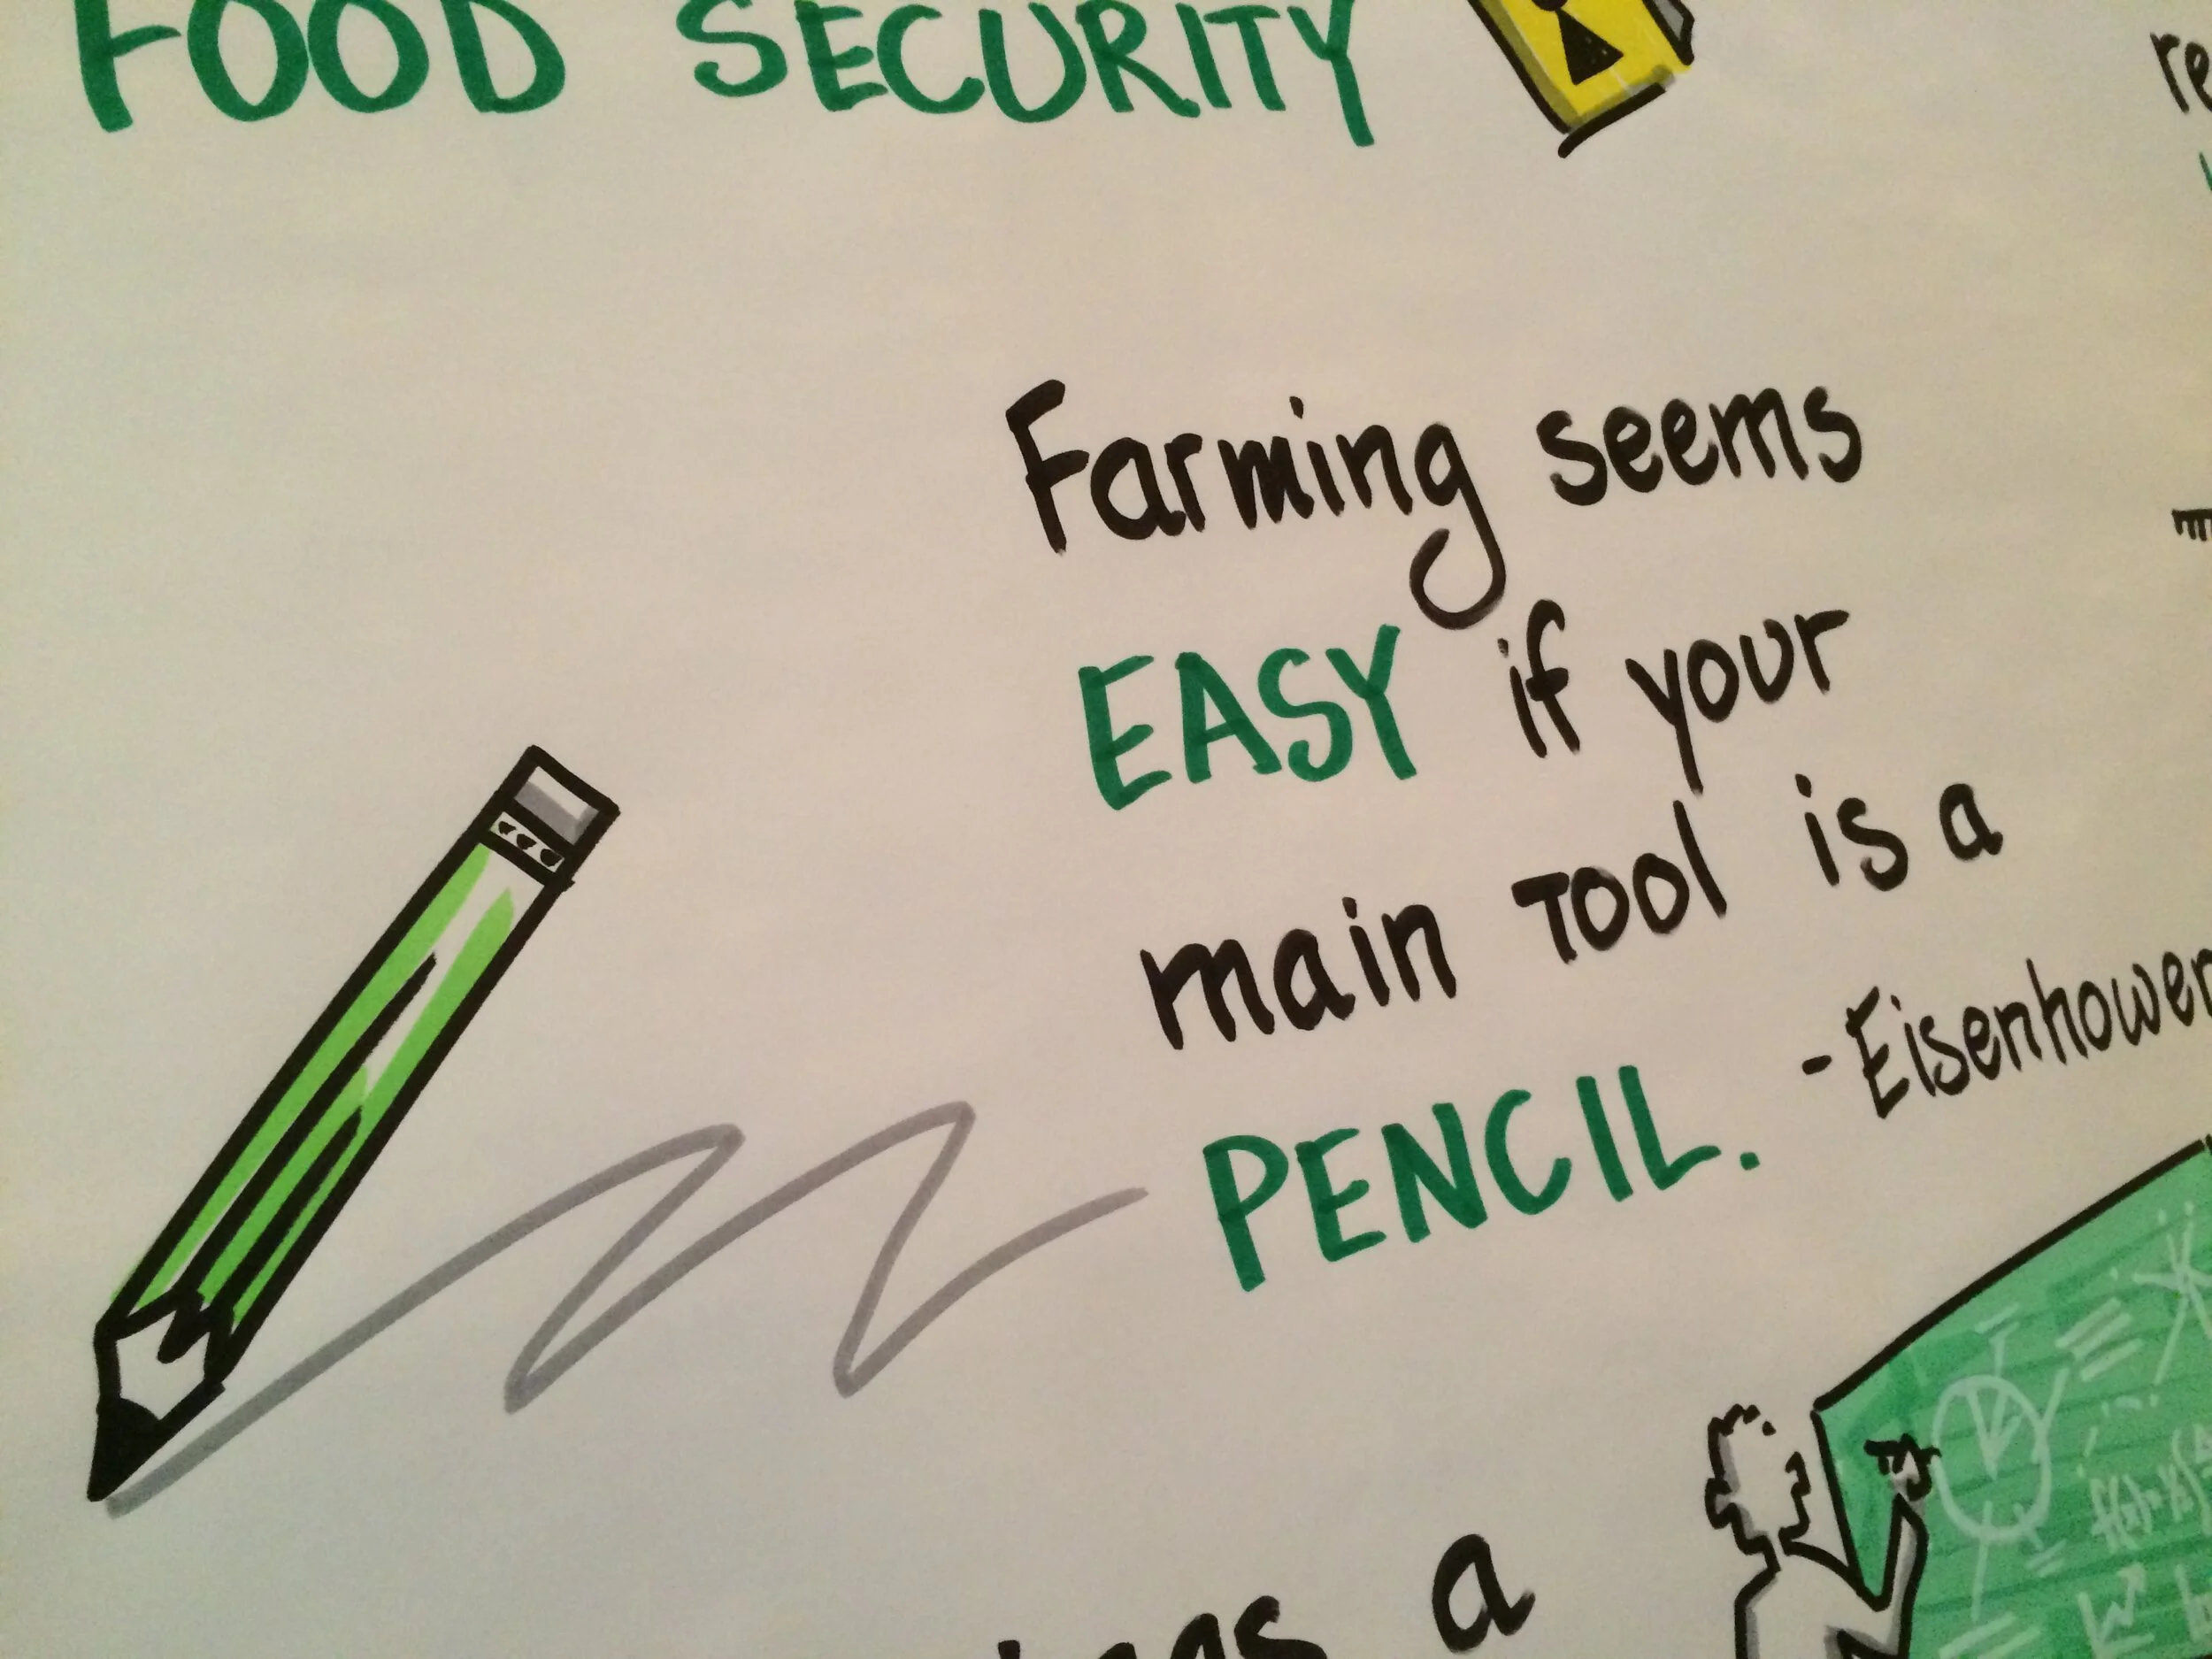 FOOD SECURITY
Farming seems
EASY if your
main TOOl is a
PENCIL.
-Eisenhower
a